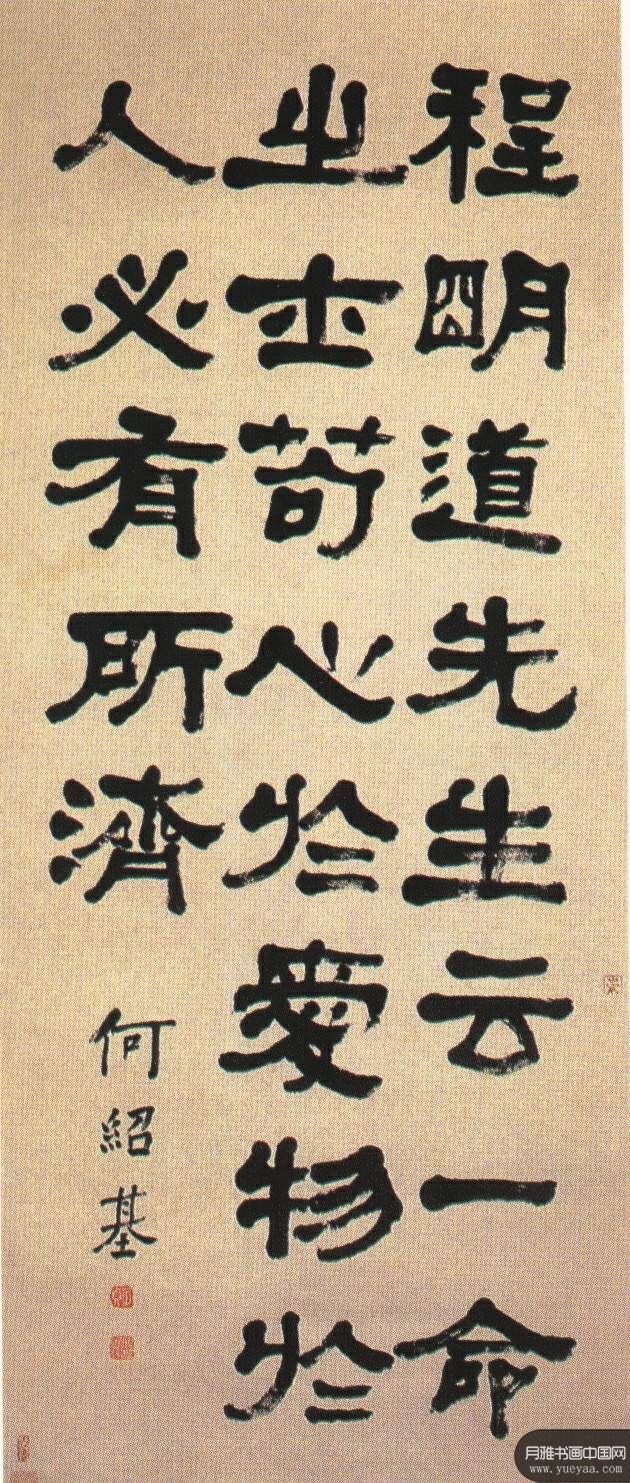 程明道先生云一命
之士苟心於愛物於
人必有所濟
何紹基
月雅书画中国网
www.yueyaa.com